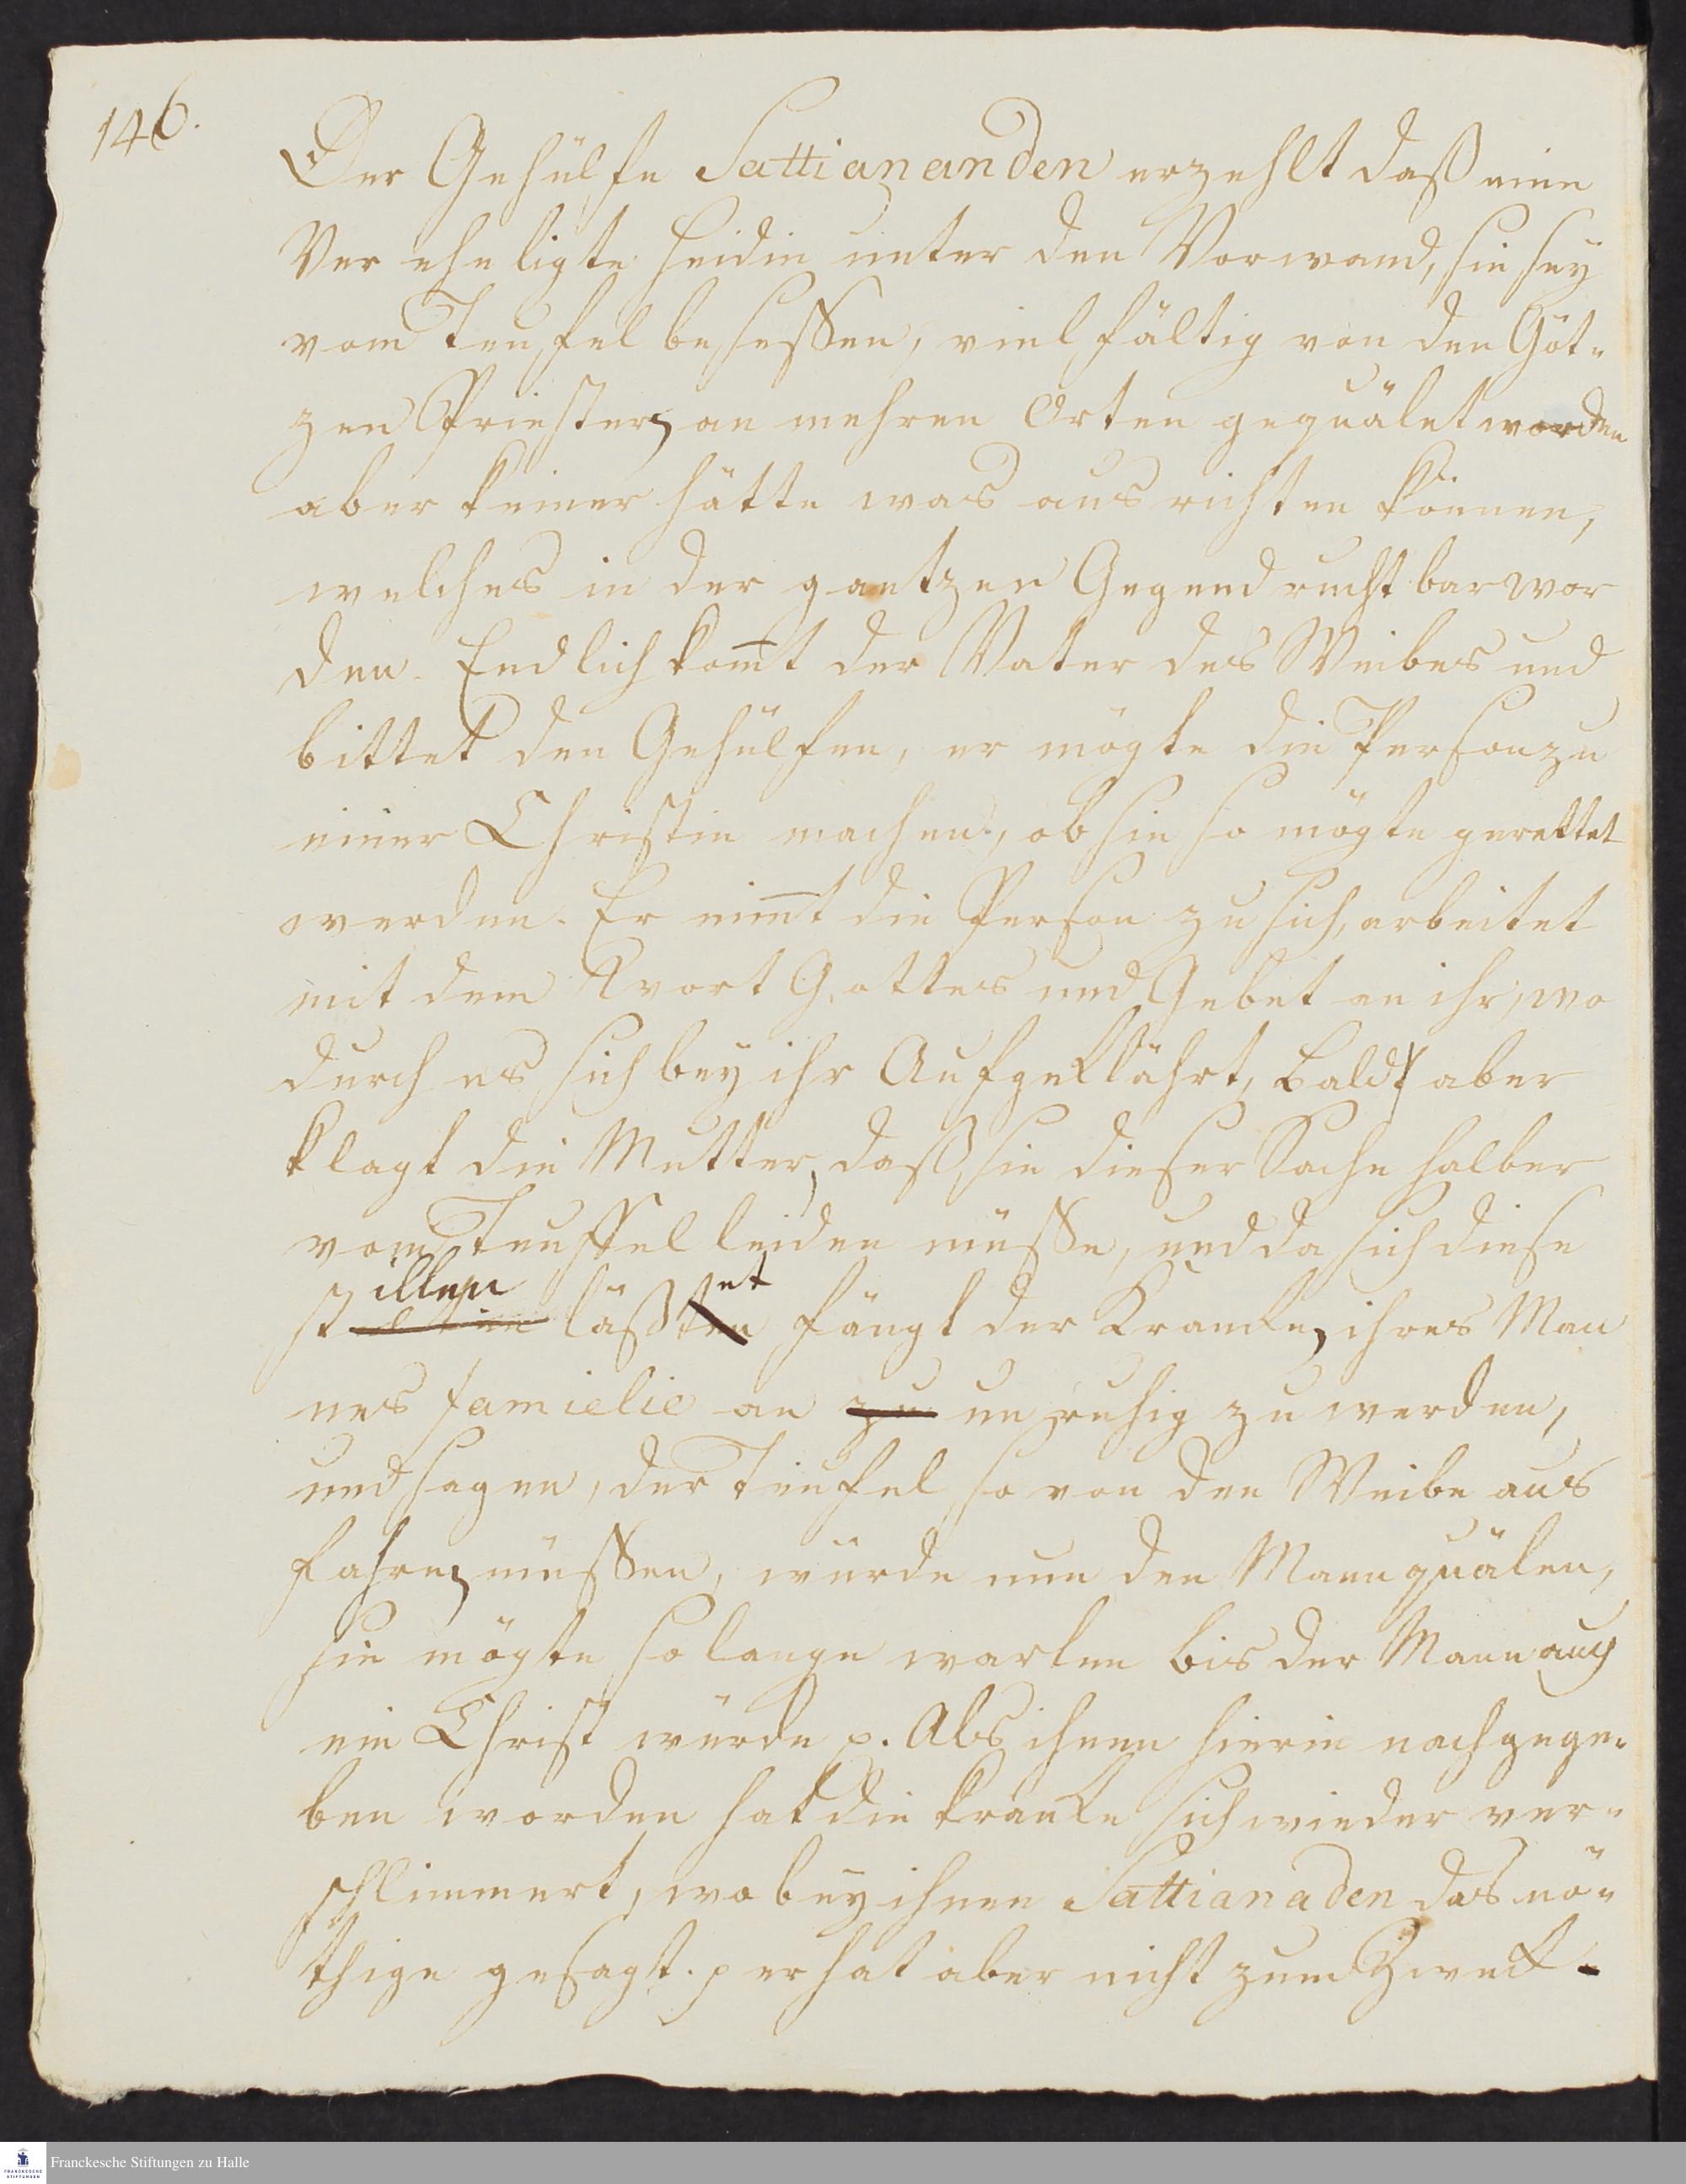 146.
Der Gehülfe Sattiananden erzehlt daß eine
Ver eheligte Heidin unter den Vorwand, sie sey
vom Teufel besessen, vielfältig von den Göt-
zen Priestern an mehren Orten gequälet worden
aber keiner hätte was ausrichten können,
welches in der gantzen Gegend rucht bar wor
den. Endlich kom̅t der Vater des Weibes und
bittet den Gehülfen, er mögte die Person zu
einer Christin machen, ob sie so mögte gerettet
werden. Er nim̅t die Person zu sich, arbeitet
mit dem Wort Gottes und Gebet an ihr, wo
durch es sich bey ihr Aufgeklährt, bald aber
klagt die Mutter, daß sie dieser Sache halber
vom Teuffel leiden müsse, und da sich diese
stillen läßet fängt der Kranken ihres Man
nes familie an zu unruhig zu werden,
und sagen, der Teufel so von den Weibe aus
fahren müssen, würde nun den Mann quälen,
sie mögte so lange warten bis der Mann auch
ein Christ würde p. Als ihnen hierin nachgege-
ben worden hat die kranke sich wieder ver-
schlimmert, wobey ihnen Sattianaden das nö-
thige gesagt. p er hat aber nicht zum Zweck
Franckesche Stiftungen zu Halle